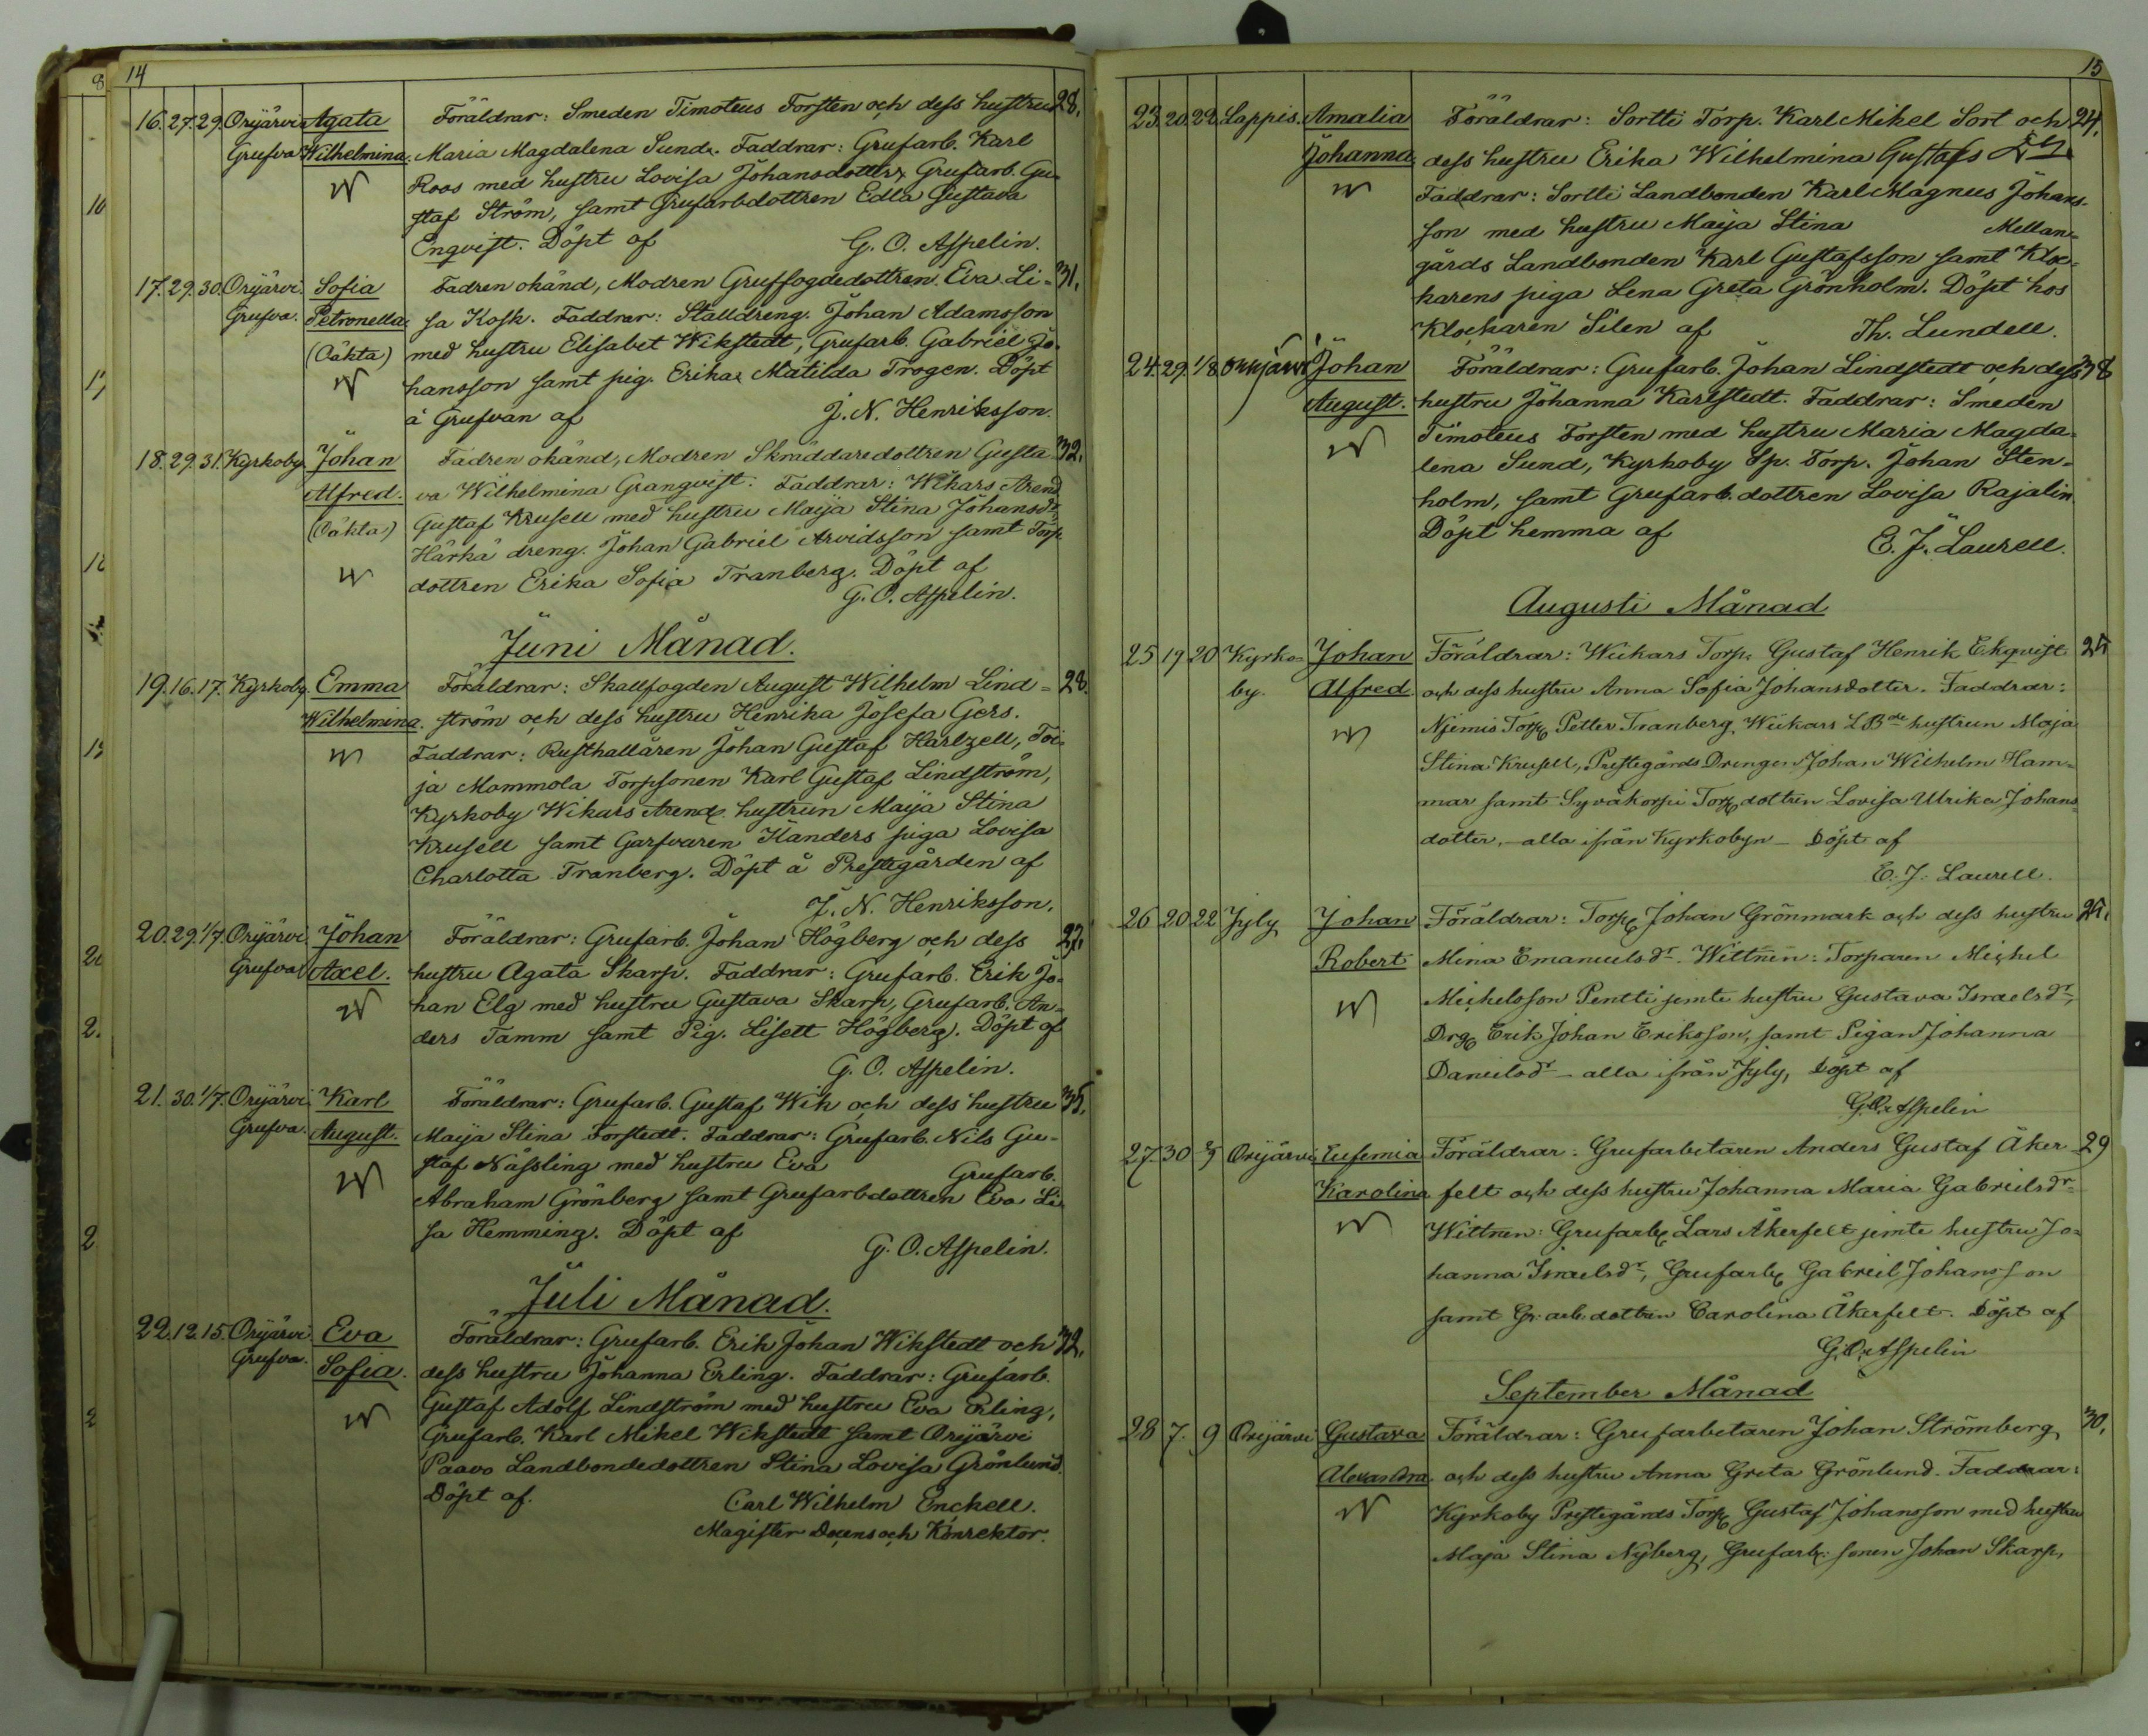 14
16. 27. 29. Orijärvi Agata Föräldrar: Smeden Timoteus Forsten och dess hustru 28.
Grufva Wilhelmina. Maria Magdalena Sund. Faddrar: Grufarb. Karl
Roos med hustru Lovisa Johansdotter, Grufarb. Gu-
staf Ström, samt Grufarbdottren Edla Gustava
Enqvist. Döpt af G. O. Aspelin.
17. 29. 30. Orijärvi Sofia Fadren okänd, Modren Gruffogdedottren Eva Li- 31.
Grufva. Petronella sa Kosk. Faddrar: Stalldreng. Johan Adamsson
(Oäkta) med hustru Elisabet Wikstedt, Grufarb. Gabriel Jo-
hansson samt pig. Erika Matilda Trogen. Döpt
å Grufvan af J. N. Henriksson.
18. 29. 31. Kyrkoby. Johan Fadren okänd, Modren Skräddaredottren Gusta- 32.
Alfred. va Wilhelmina Granqvist. Faddrar: Wikars Arend.
(Oäkta) Gustaf Krusell med hustru Maija Stina Johansdr,
Härkä dreng. Johan Gabriel Arvidsson samt Torp.
dottren Erika Sofia Tranberg. Döpt af
G. O. Aspelin.
Juni Månad.
19. 16. 17. Kyrkoby. Emma Föräldrar: Skallfogden August Wilhelm Lind- 28.
Wilhelmina. ström och dess hustru Henrika Josefa Gers.
Faddrar: Rusthållaren Johan Gustaf Hartzell, Toi-
ja Mommola Torpsonen Karl Gustaf Lindström,
Kyrkoby Wikars Arend. hustrun Maija Stina
Krusell samt Garfvaren Flanders piga Lovisa
Charlotta Tranberg. Döpt å Prestegården af
J. N. Henriksson.
20. 29. 1/7. Orijärvi Johan Föräldrar: Grufarb. Johan Högberg och dess 27.
Grufva Axel. hustru Agata Skarp. Faddrar: Grufarb. Erik Jo-
han Elg med hustru Gustava Skarp, Grufarb. An-
ders Tamm samt Pig. Lisett Högberg. Döpt af
G. O. Aspelin.
21. 30. 1/7. Orijärvi Karl Föräldrar: Grufarb. Gustaf Wik och dess hustru 35.
Grufva. August. Maija Stina Forstedt. Faddrar: Grufarb. Nils Gu-
staf Nässling med hustru Eva Grufarb.
Abraham Grönberg samt Grufarbdottren Eva Li-
sa Hemming. Döpt af G. O. Aspelin.
Juli Månad.
22. 12. 15. Orijärvi Eva Föräldrar: Grufarb. Erik Johan Wikstedt och 32.
Grufva. Sofia. dess hustru Johanna Erling. Faddrar: Grufarb.
Gustaf Adolf Lindström med hustru Eva Erling,
Grufarb. Karl Mikel Wikstedt samt Orijärvi
Paavo Landbondedottren Stina Lovisa Grönlund.
Döpt af. Carl Wilhelm Enckell.
Magister Docens och Konrektor.
15
23. 20. 22. Lappis. Amalia Föräldrar: Sortti Torp. Karl Mikel Sort och 24.
Johanna dess hustru Erika Wilhelmina Gustafs Dr.
Faddrar: Sortti Landbonden Karl Magnus Johans-
son med hustru Maija Stina Mellan-
gårds Landbonden Karl Gustafsson samt Kloc-
karens piga Lena Greta Grönholm. Döpt hos
Klockaren Silen af Th. Lundell.
24. 29. 1/8 Orijärvi Johan Föräldrar: Grufarb. Johan Lindstedt och dess 38
August. hustru Johanna Karlstedt. Faddrar: Smeden
Timoteus Forsten med hustru Maria Magda-
lena Sund, Kyrkoby Sp. Torp. Johan Sten-
holm, samt Grufarb. dottren Lovisa Rajalin
Döpt hemma af E. J. Laurell.
Augusti Månad
25 19 20 Kyrko- Johan Föräldrar: Wikars Torp. Gustaf Henrik Ekqvist 24
by. Alfred och dess hustru Anna Sofia Johansdotter. Faddrar:
Njemis Torp. Petter Tranberg, Wikars LBde hustrun Maja
Stina Krusell, Prestegårds Drengen Johan Wilhelm Ham-
mar samt Syväkorpi Torp. dottren Lovisa Ulrika Johans-
dotter, - alla ifrån Kyrkobyn - Döpt af
E. J. Laurell.
26 20 22 Jyly Johan Föräldrar: Torp. Johan Grönmark och dess hustru
Robert Mina Emanuelsdr. Wittnen: Torparen Michel
Michelsson Pentti jemte hustru Gustava Israelsdr,
Drg. Erik Johan Eriksson, samt Pigan Johanna
Danielsdr - alla ifrån Jyly, Döpt af
G. O. Aspelin
27. 30 Orijärvi Eufemia Föräldrar: Grufarbetaren Anders Gustaf Åker- 29
Karolina felt och dess hustru Johanna Maria Gabrielsdr
Wittnen: Grufarb. Lars Åkerfelt jemte hustru Jo-
hanna Israelsdr, Grufarb. Gabriel Johansson
samt Gr.arb.dottren Carolina Åkerfelt. Döpt af
G. O. Aspelin
September Månad
28 7. 9 Orijärvi Gustava Föräldrar: Grufarbetaren Johan Strömberg 30.
Alexandra och dess hustru Anna Greta Grönlund. Faddrar:
Kyrkoby Prestegårds Torp. Gustaf Johansson med hustru
Maja Stina Nyberg, Grufarb. sonen Johan Skarp,